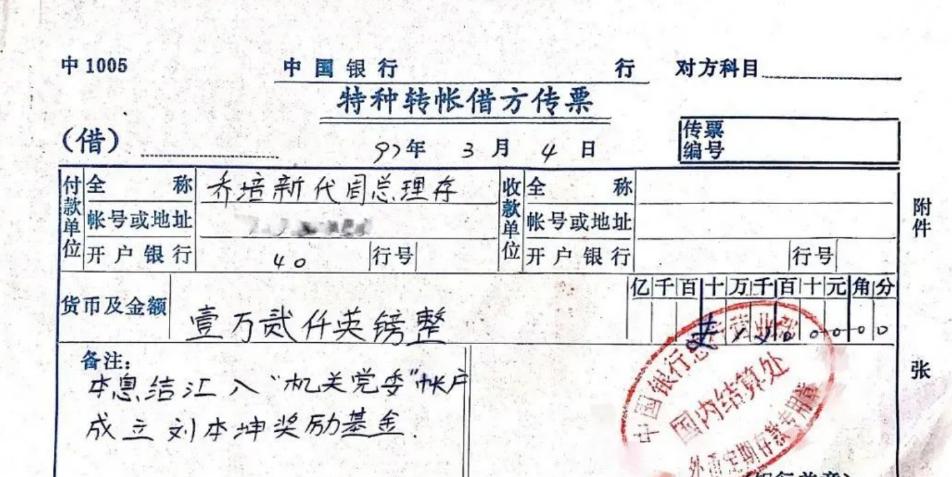 中1005 中国银行 行 对方科目
特种转帐借方传票
(借) 97年 3月 4日 传票编号
付款单位 全称 乔培新代周总理存 收款单位 全称
帐号或地址 帐号或地址
开户银行 40 行号 开户银行 行号
附件
货币及金额 壹万贰仟英镑整 亿千百十万千百十元角分
备注:
本息结汇入“机关党委”帐户
成立刘本坤奖励基金.
张
中国银行 营业部
国内结算处
外币定期存款专用章